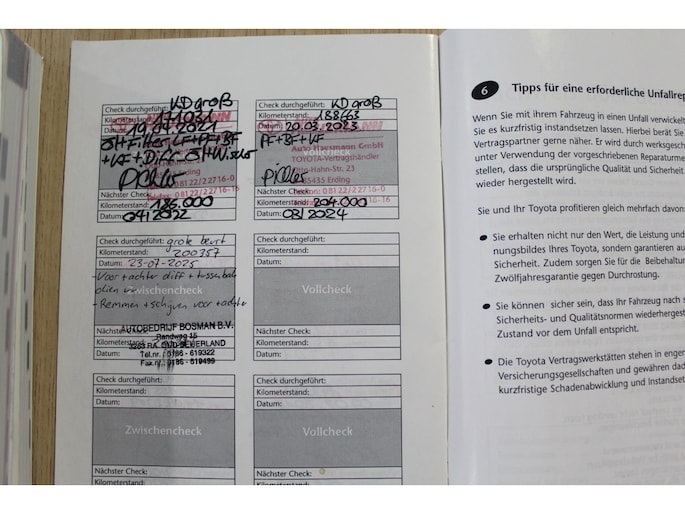 Check durchgeführt: KD groß
Kilometerstand: 171031
Datum: 19.04.2021
Öl+Filter+LF+PF+BF
+VF+Diff.
Nächster Check:
Kilometerstand: 186.000
Datum: 04/2022
Check durchgeführt: KD groß
Kilometerstand: 188663
Datum: 20.03.2023
PF+BF+VF
Auto Haysmann GmbH
TOYOTA-Vertragshändler
85435 Erding
08122/22716-0
Nächster Check:
Kilometerstand: 204.000
Datum: 03/2024
Check durchgeführt: grote beurt
Kilometerstand: 200357
Datum: 23-07-2025
-Voor + achter diff + tussenbak
olien
- Remmen + schijven voor + achter
Zwischencheck
Nächster Check:
AUTOBEDRIJF BOSMAN B.V.
Randweg 15
3263 RA OUD-BEIJERLAND
Tel.nr.: 0186 - 619322
Fax.nr.: 0186 - 619499
Check durchgeführt:
Kilometerstand:
Datum:
Vollcheck
Nächster Check:
Kilometerstand:
Datum:
Check durchgeführt:
Kilometerstand:
Datum:
Zwischencheck
Nächster Check:
Kilometerstand:
Check durchgeführt:
Kilometerstand:
Datum:
Vollcheck
Nächster Check:
Kilometerstand:
6 Tipps für eine erforderliche Unfallrep
Wenn Sie mit ihrem Fahrzeug in einen Unfall verwickelt
Sie es kurzfristig instandsetzen lassen. Hierbei berät Sie
Vertragspartner gerne näher. Er wird durch werksgesch
unter Verwendung der vorgeschriebenen Reparaturme
stellen, dass die ursprüngliche Qualität und Sicherheit
wieder hergestellt wird.
Sie und Ihr Toyota profitieren gleich mehrfach davon:
● Sie erhalten nicht nur den Wert, die Leistung und
nungsbildes Ihres Toyota, sondern garantieren au
Sicherheit. Zudem sorgen Sie für die Beibehaltun
Zwölfjahresgarantie gegen Durchrostung.
● Sie können sicher sein, dass Ihr Fahrzeug nach s
Sicherheits- und Qualitätsnormen wiederhergest
Zustand vor dem Unfall entspricht.
● Die Toyota Vertragswerkstätten stehen in engem
Versicherungsgesellschaften und gewähren dad
kurzfristige Schadenabwicklung und Instandset